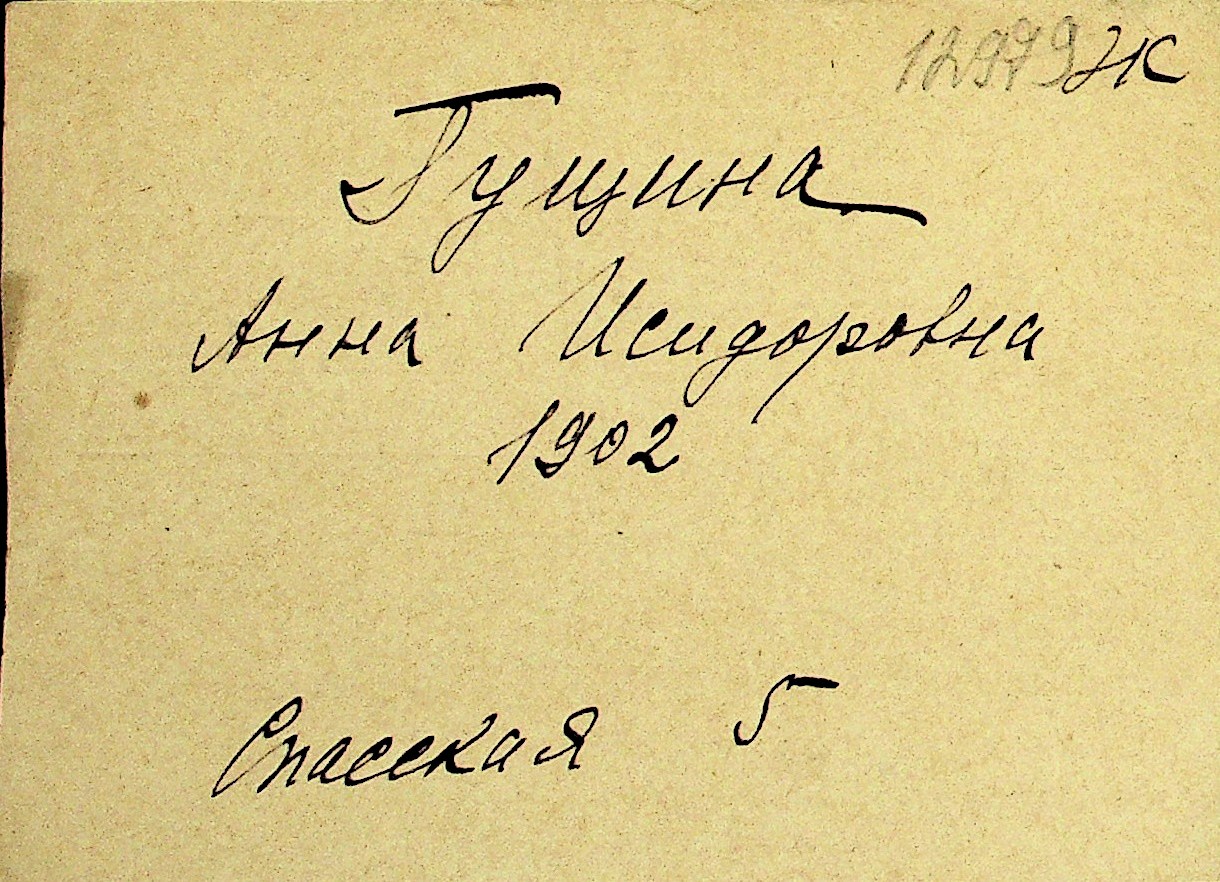 12979 ЖК
Гущина
Анна Исидоровна
1902
Спасская 5